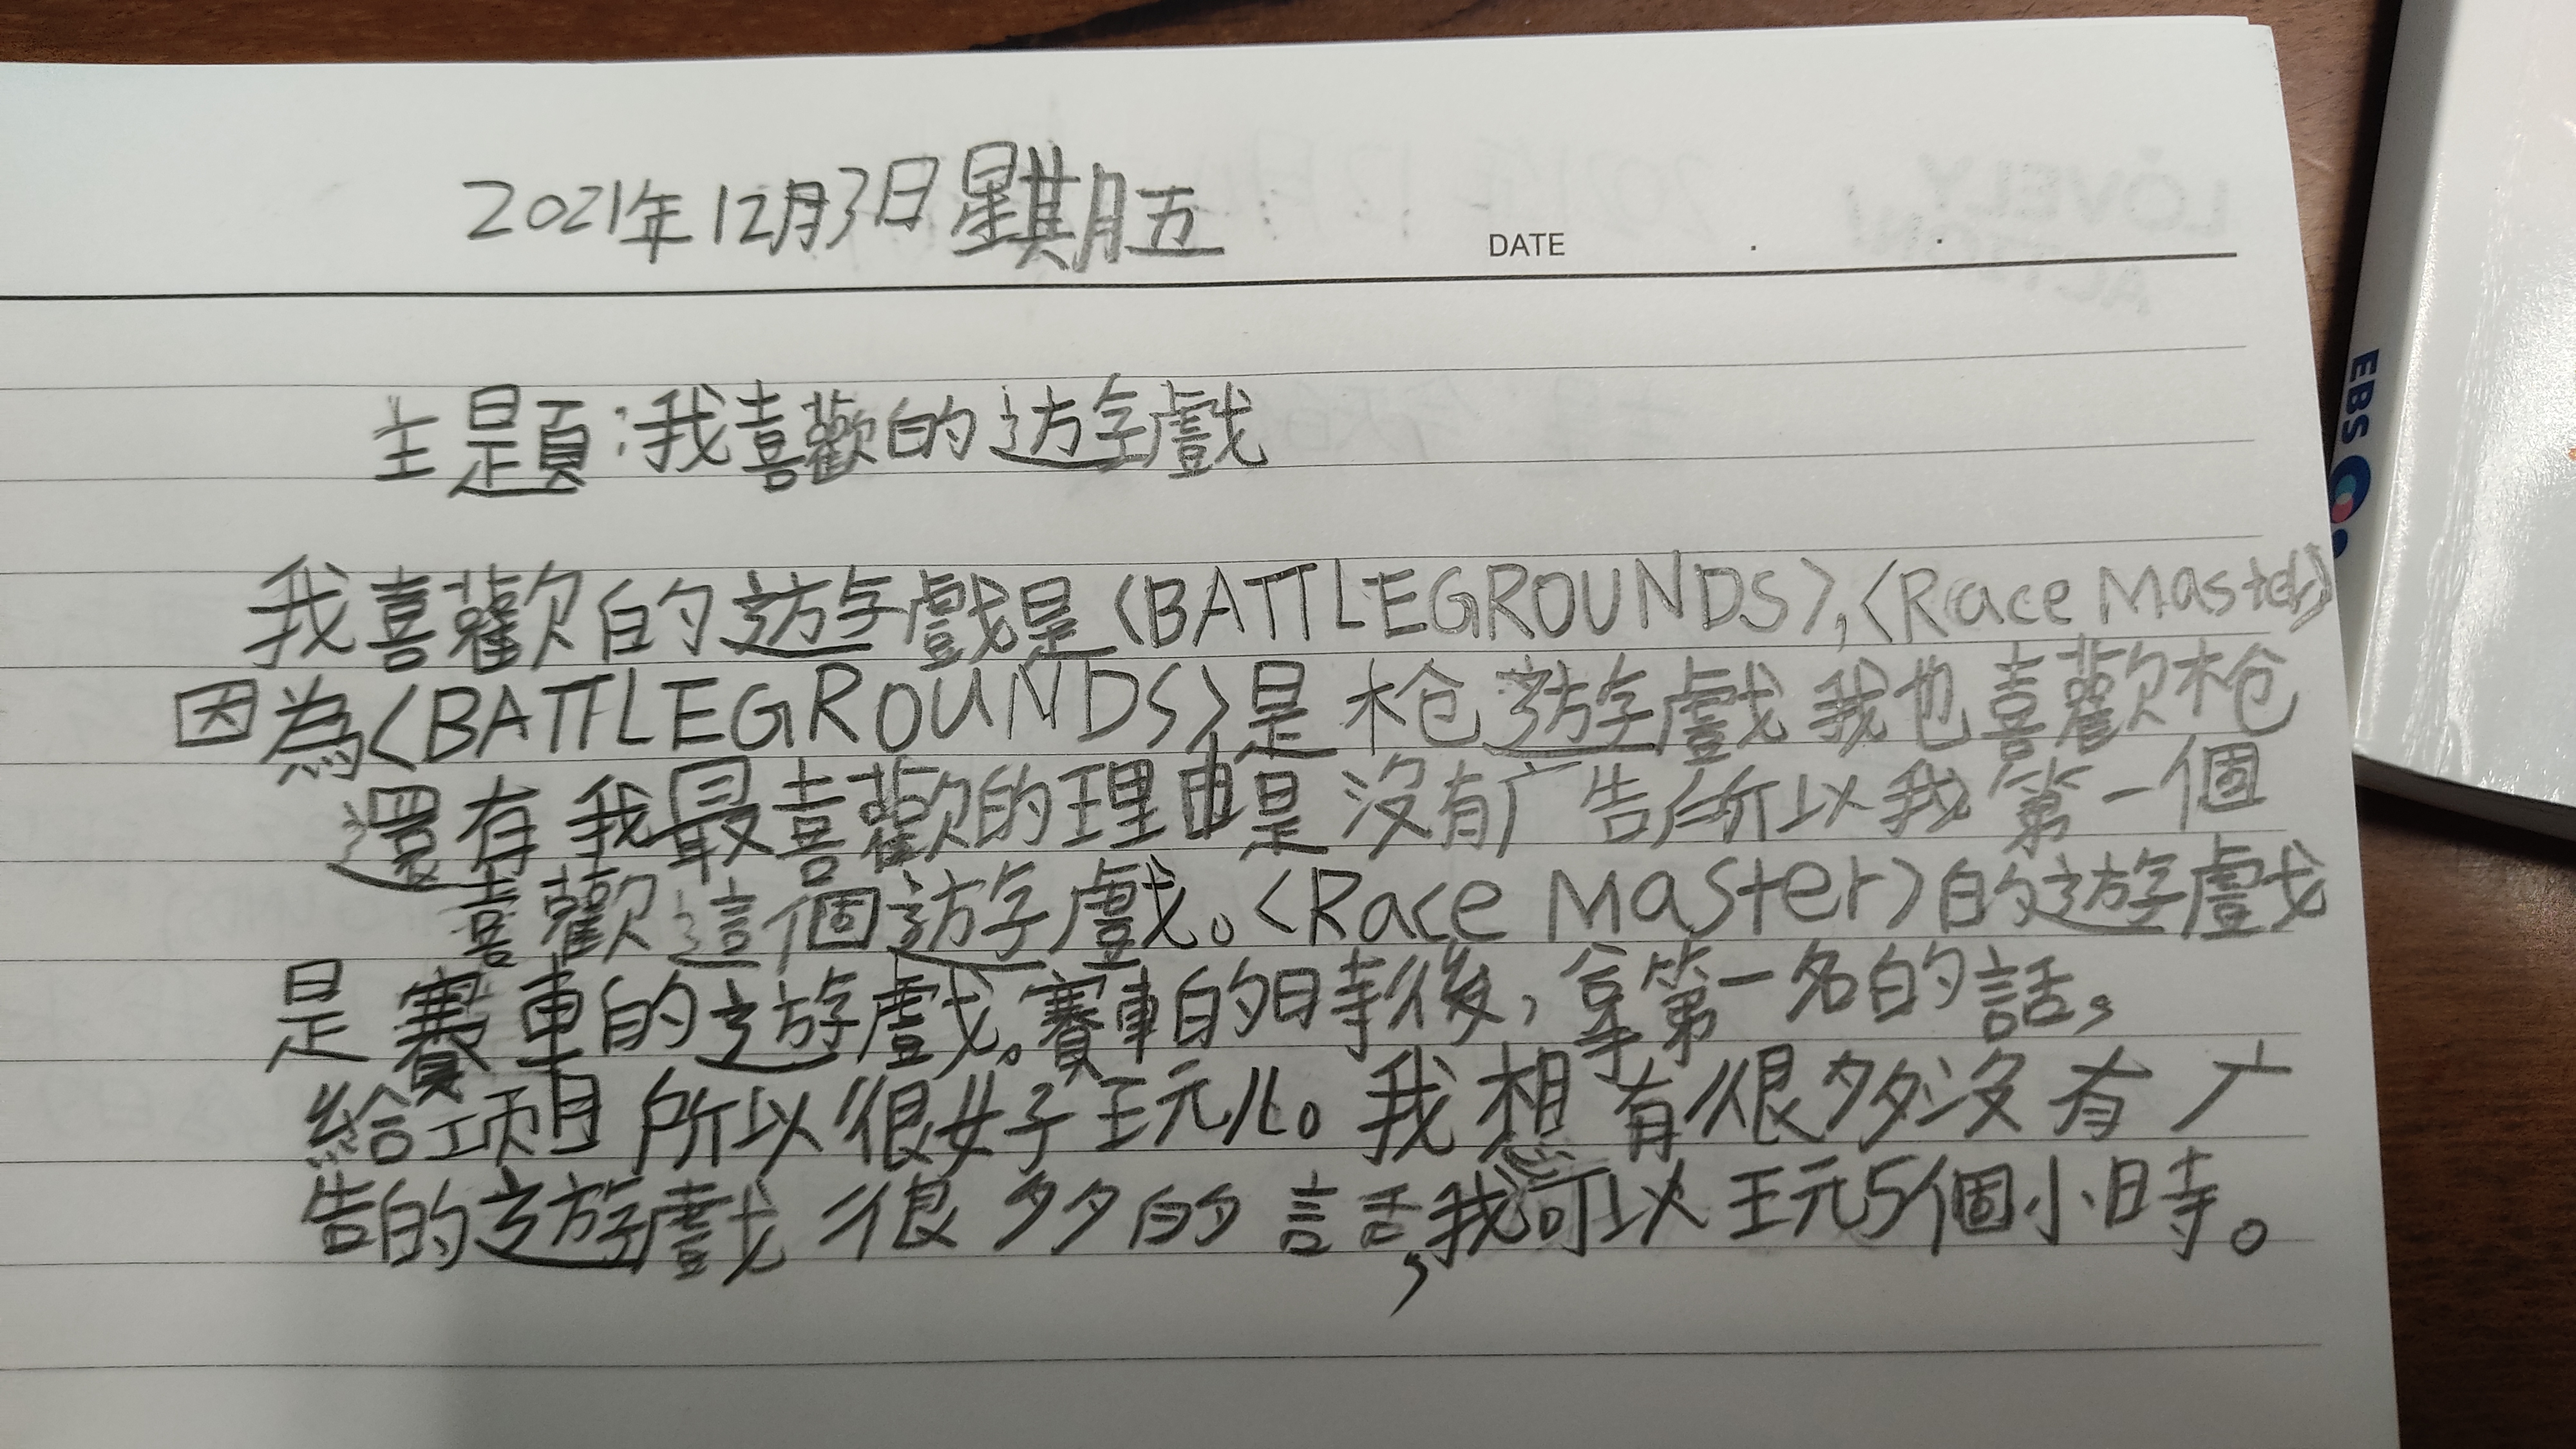 2021年12月3日星期五
DATE . .
主題:我喜歡的遊戲
我喜歡的遊戲是<BATTLEGROUNDS>,<Race Master>
因為<BATTLEGROUNDS>是枪遊戲我也喜歡枪
還有我最喜歡的理由是沒有广告所以我第一個
喜歡這個遊戲。<Race Master>的遊戲
是賽車的遊戲。賽車的時後,拿第一名的話,
給项目所以很好玩儿。我想有很多沒有广
告的遊戲很多的話,我可以玩5個小時。
EBS
LOVELY